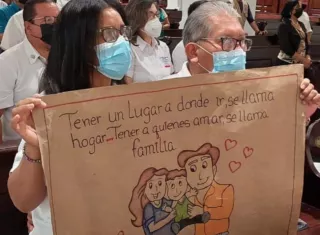 Tener un Lugar a donde ir, se llama
hogar... Tener a quienes amar, se llama
familia